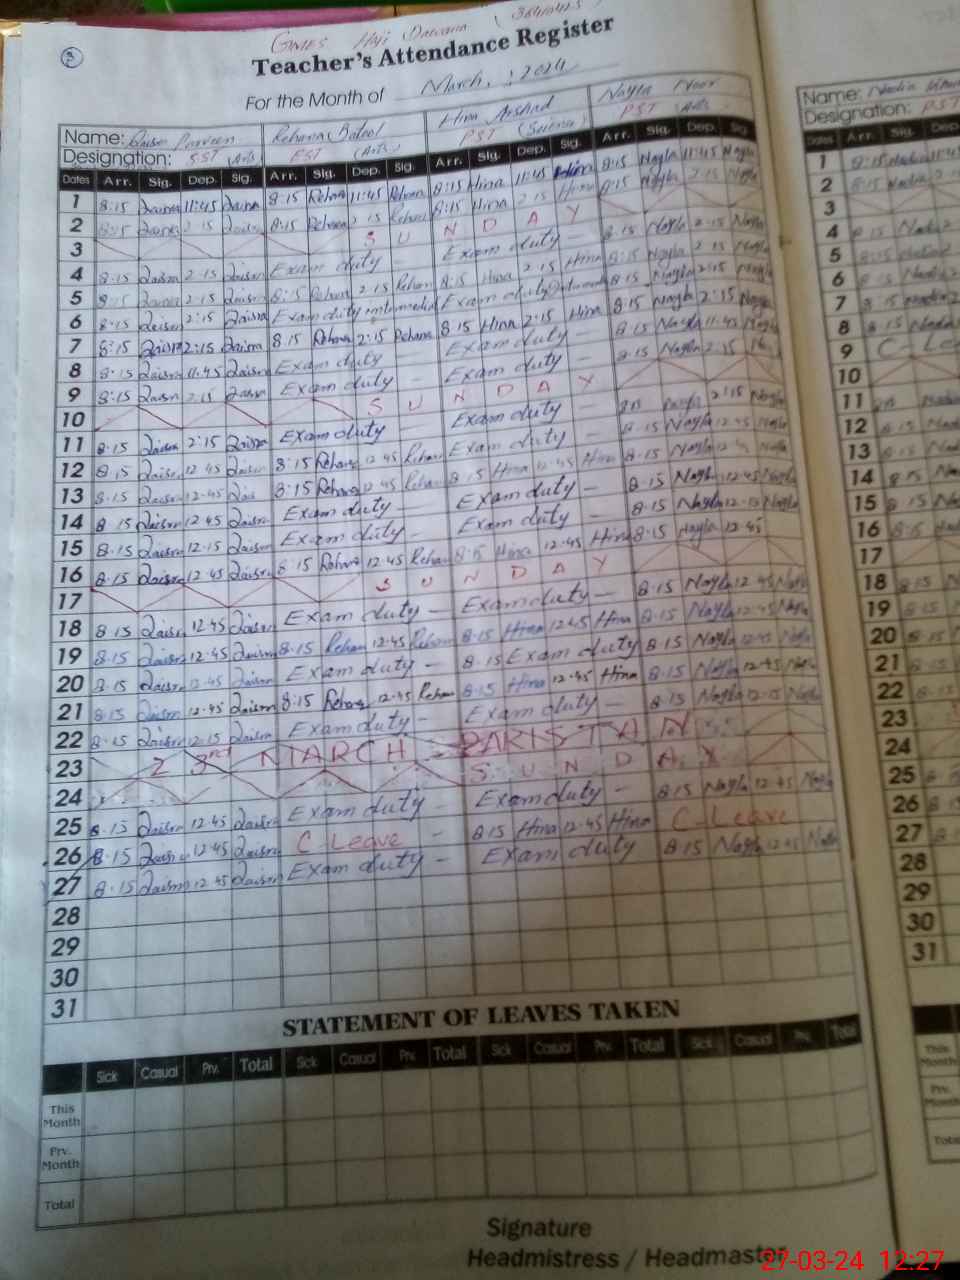 GMES Haji Dawana (38410425)
Teacher's Attendance Register
For the Month of March, 2024
Name: Qaisra Parveen Rehana Batool Hina Arshad Nayla Noor
Designation: SST (Arts) EST (Arts) PST (Science) PST (Arts)
Dates Arr. Sig. Dep. Sig. Arr. Sig. Dep. Sig. Arr. Sig. Dep. Sig. Arr. Sig. Dep. Sig.
1 8:15 Qaisra 11:45 Qaisra 8:15 Rehana 11:45 Rehana 8:15 Hina 11:45 Hina 8:15 Nayla 11:45 Nayla
2 8:15 Qaisra 2:15 Qaisra 8:15 Rehana 2:15 Rehana 8:15 Hina 2:15 Hina 8:15 Nayla 2:15 Nayla
3 SUNDAY
4 8:15 Qaisra 2:15 Qaisra Exam duty – Exam duty – 8:15 Nayla 2:15 Nayla
5 8:15 Qaisra 2:15 Qaisra 8:15 Rehana 2:15 Rehana 8:15 Hina 2:15 Hina 8:15 Nayla 2:15 Nayla
6 8:15 Qaisra 2:15 Qaisra Exam duty intermediate Exam duty 8:15 Nayla 2:15 Nayla
7 8:15 Qaisra 2:15 Qaisra 8:15 Rehana 2:15 Rehana 8:15 Hina 2:15 Hina 8:15 Nayla 2:15 Nayla
8 8:15 Qaisra 11:45 Qaisra Exam duty – Exam duty – 8:15 Nayla 11:45 Nayla
9 8:15 Qaisra 2:15 Qaisra Exam duty – Exam duty – 8:15 Nayla 2:15
10 SUNDAY
11 8:15 Qaisra 2:15 Qaisra Exam duty – Exam duty – 8:15 Nayla 2:15 Nayla
12 8:15 Qaisra 12:45 Qaisra 8:15 Rehana 12:45 Rehana Exam duty – 8:15 Nayla 12:45 Nayla
13 8:15 Qaisra 12:45 Qaisra 8:15 Rehana 12:45 Rehana 8:15 Hina 12:45 Hina 8:15 Nayla 12 Nayla
14 8:15 Qaisra 12:45 Qaisra Exam duty – Exam duty – 8:15 Nayla 12:45 Nayla
15 8:15 Qaisra 12:15 Qaisra Exam duty – Exam duty – 8:15 Nayla 12:15 Nayla
16 8:15 Qaisra 12:45 Qaisra 8:15 Rehana 12:45 Rehana 8:15 Hina 12:45 Hina 8:15 Nayla 12:45
17 SUNDAY
18 8:15 Qaisra 12:45 Qaisra Exam duty – Exam duty – 8:15 Nayla 12:45 Nayla
19 8:15 Qaisra 12:45 Qaisra 8:15 Rehana 12:45 Rehana 8:15 Hina 12:45 Hina 8:15 Nayla 12:45 Nayla
20 8:15 Qaisra 12:45 Qaisra Exam duty – 8:15 Exam duty 8:15 Nayla 12:45 Nayla
21 8:15 Qaisra 12:45 Qaisra 8:15 Rehana 12:45 Rehana 8:15 Hina 12:45 Hina 8:15 Nayla 12:45 Nayla
22 8:15 Qaisra 12:15 Qaisra Exam duty – Exam duty – 8:15 Nayla 12:15 Nayla
23 23rd MARCH – PAKISTAN
24 SUNDAY
25 8:15 Qaisra 12:45 Qaisra Exam duty – Exam duty – 8:15 Nayla 12:45 Nayla
26 8:15 Qaisra 12:45 Qaisra C-Leave – 8:15 Hina 12:45 Hina C-Leave
27 8:15 Qaisra 12:45 Qaisra Exam duty – Exam duty 8:15 Nayla 12:45 Nayla
28
29
30
31
STATEMENT OF LEAVES TAKEN
Sick Casual Prv. Total Sick Casual Prv. Total Sick Casual Prv. Total Sick Casual Prv. Total
This Month
Prv. Month
Total
Signature
Headmistress / Headmaster
Name: Nadia
Designation: PST
Dates Arr. Sig. Dep.
1 8:15 Nadia 11:45
2 8:15 Nadia
3
4 Nadia
5 8:15
6 8:15 Nadia
7 8:15 Nadia
8 8:15 Nadia
9 C-Le
10
11
12 8:15 Nadia
13 8:15
14 8:15
15 8:15
16 8:15
17
18 8:15
19 8:15
20 8:15
21 8:15
22 8:15
23
24
25 8:15
26 8:15
27 8:15
28
29
30
31
This Month
Prv. Month
Total
27-03-24 12:27